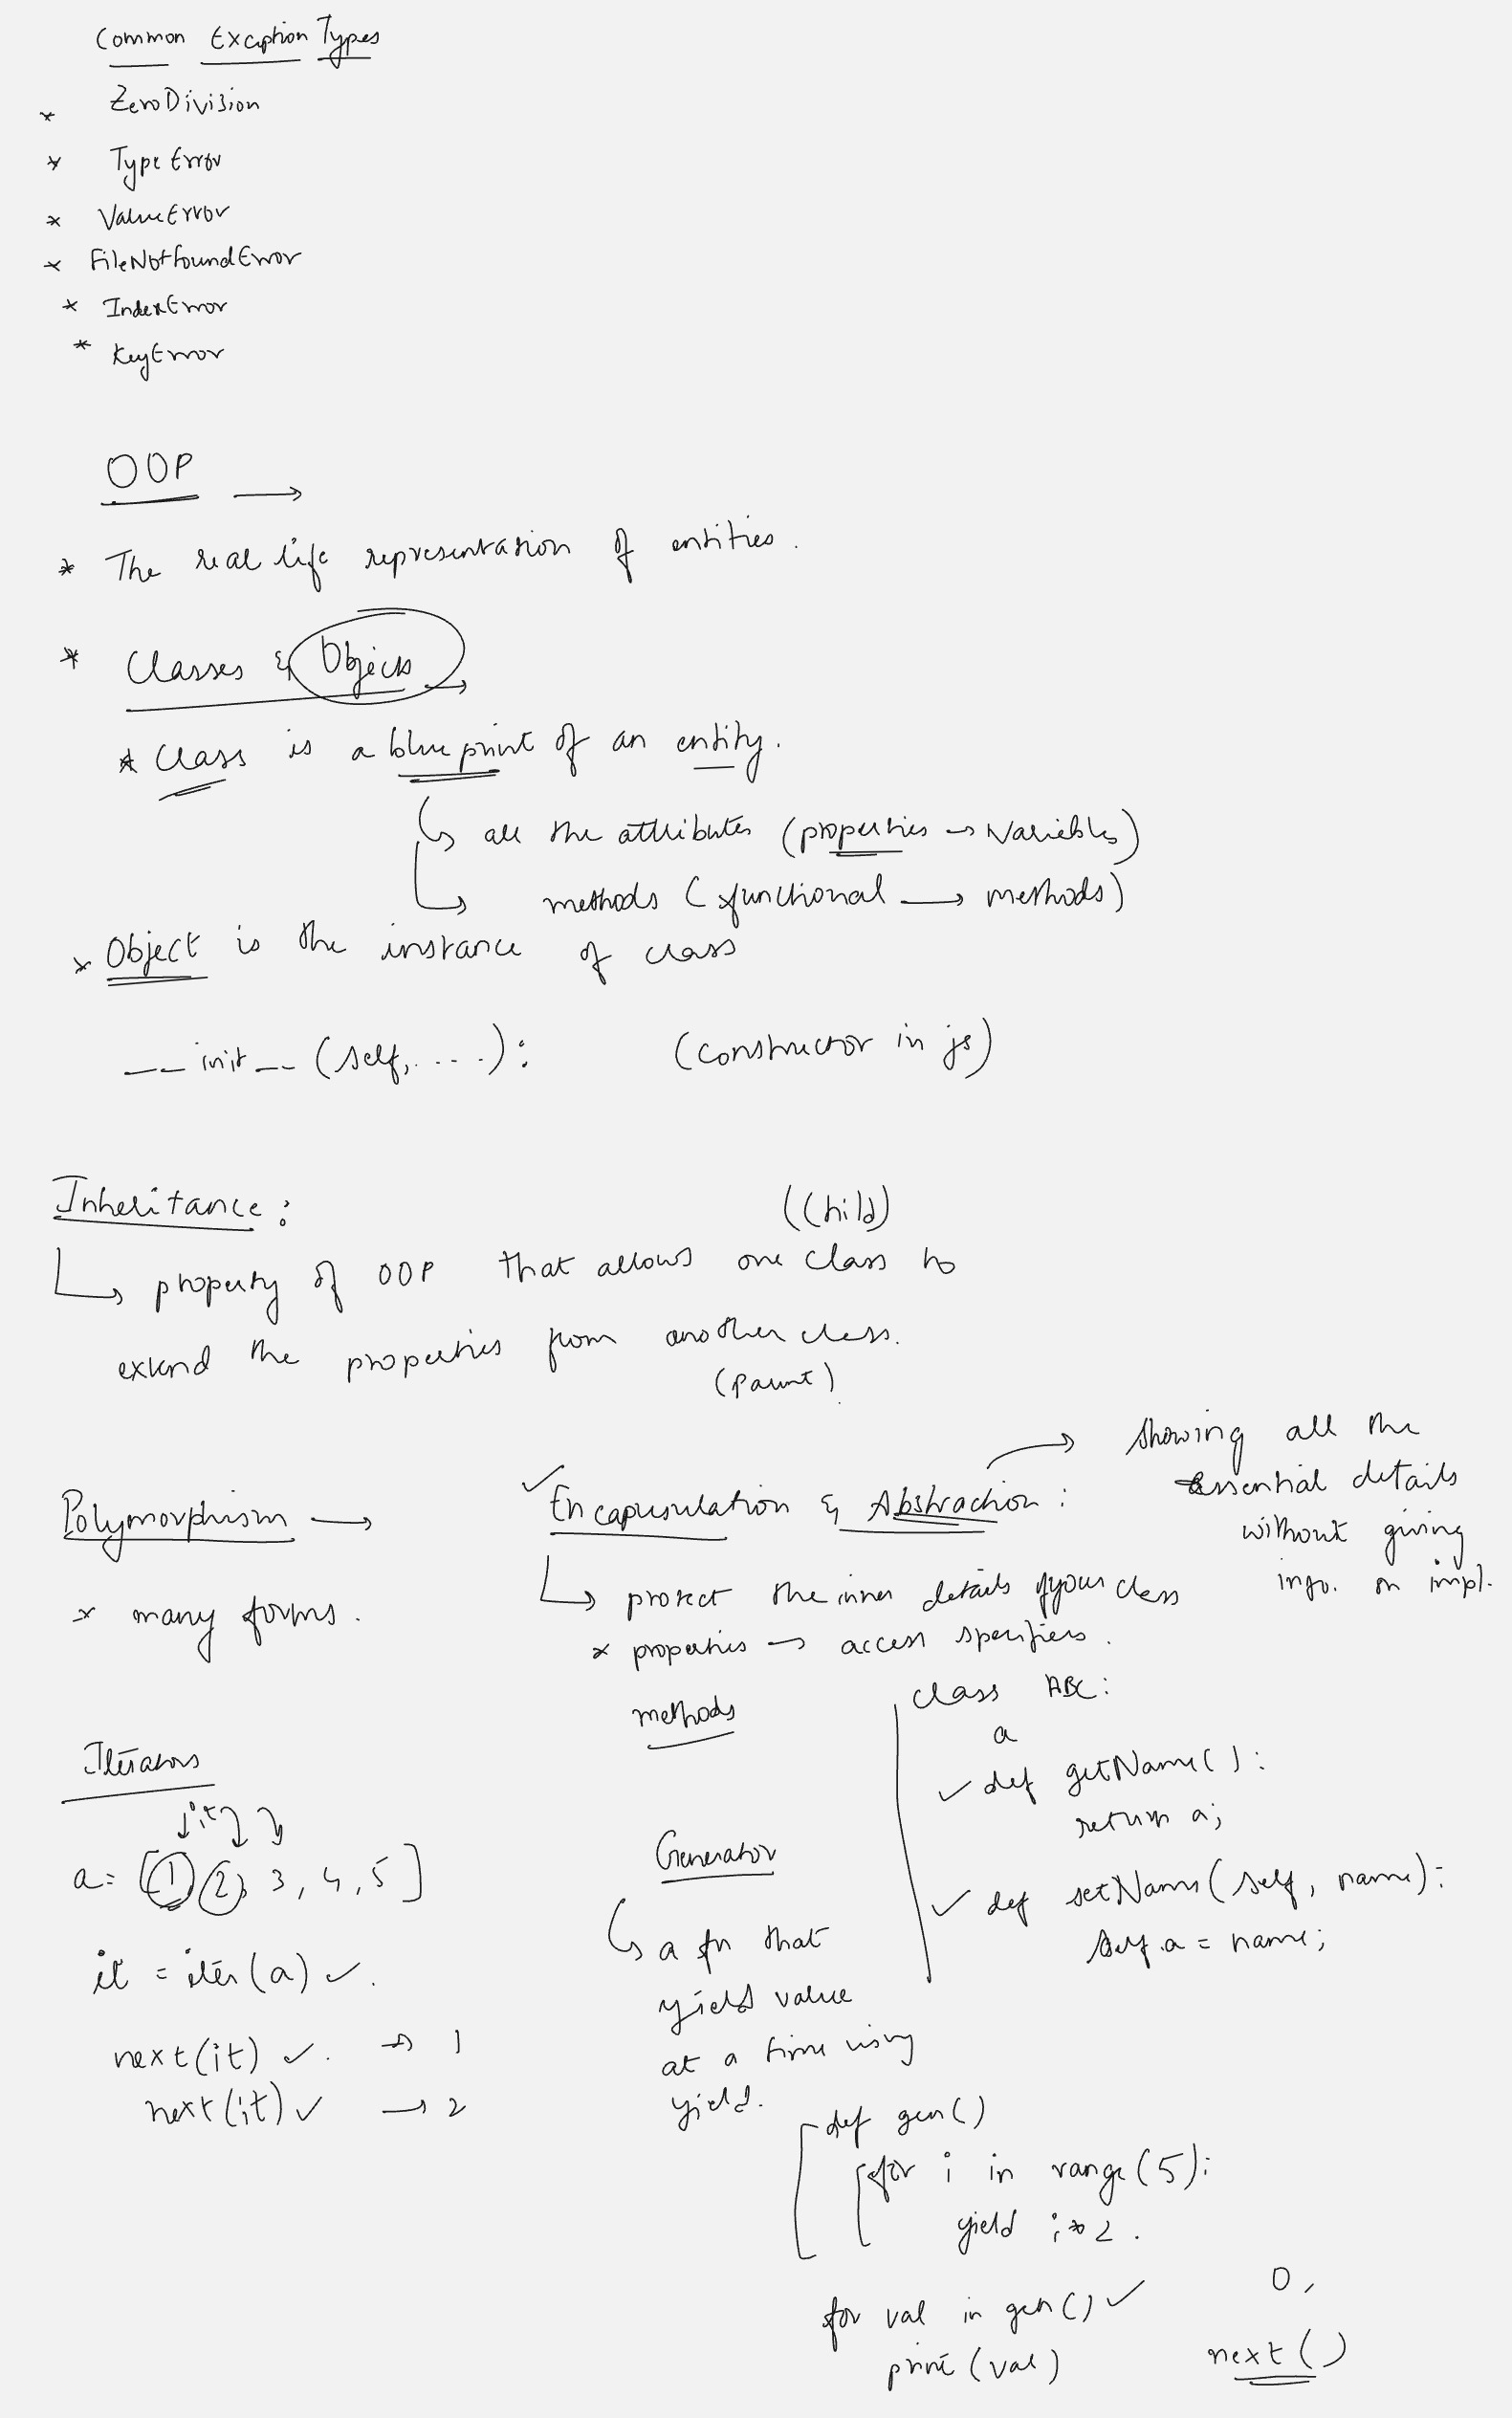 Common Exception Types
* ZeroDivision
* TypeError
* ValueError
* FileNotFoundError
* IndexError
* KeyError
OOP →
* The real life representation of entities.
* Classes & Objects →
* Class is a blueprint of an entity.
↳ all the attributes (properties → variables)
↳ methods (functional → methods)
* Object is the instance of class
__init__ (self, ....): (constructor in js)
Inheritance:
(Child)
↳ property of OOP that allows one class to
extend the properties from another class.
(Parent)
Polymorphism →
* many forms.
✓ Encapsulation & Abstraction: → showing all the
essential details
without giving
info. on impl.
↳ protect the inner details of your class
* properties → access specifiers.
methods
class ABC:
a
✓ def getName():
return a;
✓ def setName(self, name):
self.a = name;
Iterators
it
a = [1, 2, 3, 4, 5]
it = iter(a) ✓.
next(it) ✓. → 1
next(it) ✓ → 2
Generator
↳ a fn that
yield value
at a time using
yield.
def gen()
for i in range(5):
yield i*2.
for val in gen() ✓
print(val)
0,
next()